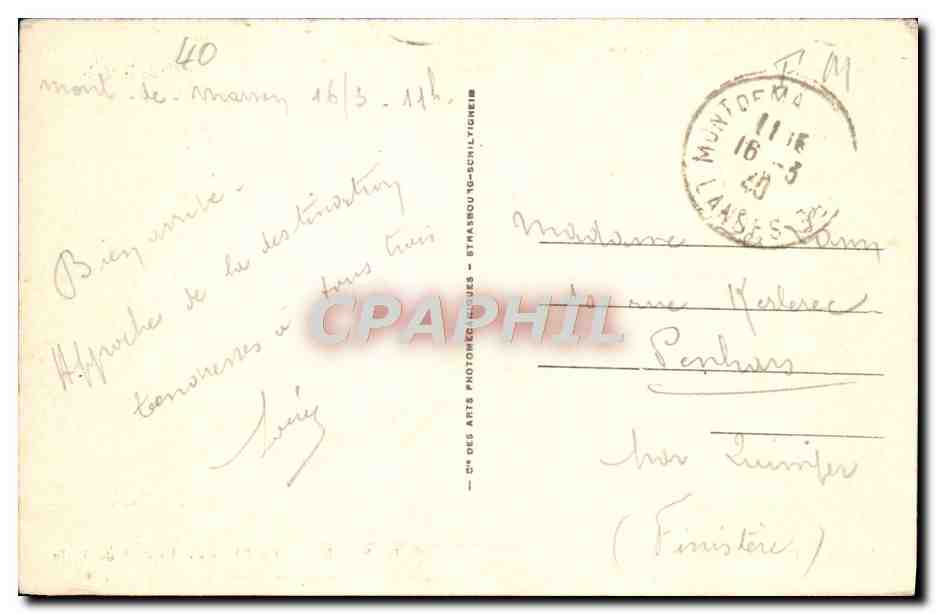 40
Mont-de-Marsan 16/3. 11h.
Bien arrivé.
Approche de la destination
tendresses à tous trois
— Cie DES ARTS PHOTOMECANIQUES - STRASBOURG-SCHILTIGHEIM
F M
MONT DE MA
LANDES
11 15
16 -3
40
Madame
rue Kerlerec
Penhars
par Quimper
(Finistère)
CPAPHIL